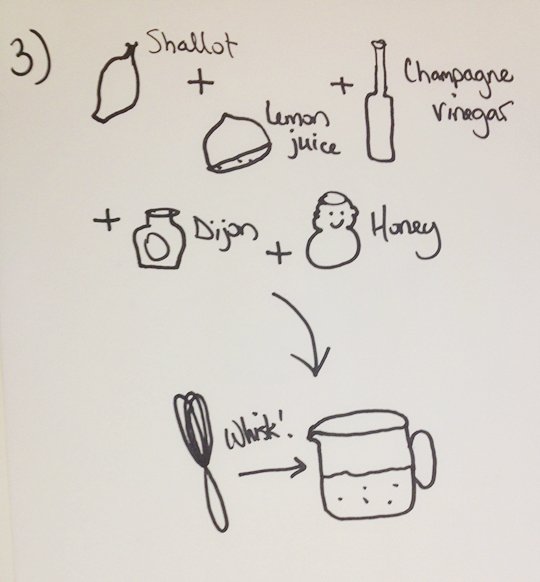 3)
Shallot
+
+
Champagne
vinegar
Lemon
juice
+
Dijon
+
Honey
Whisk!